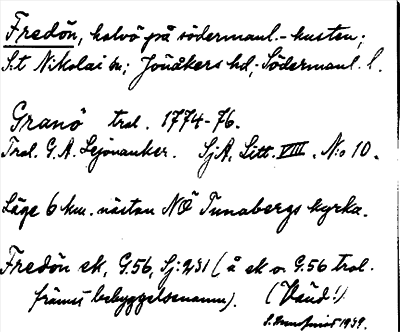 Fredön, halvö på södermanl.-kusten;
S:t Nikolai sn; Jönåkers hd; Södermanl. l.
Granö tral. 1774-76.
Tral. G. A. Lejonanker. SjA, Litt. VIII. N:o 10.
Läge 6 km. nästan NÖ Tunabergs kyrka.
Fredön ek, G.56, Sj:231 (å ek o. G.56 tral.
främst bebyggelsenamn). (Vänd!)
1939.